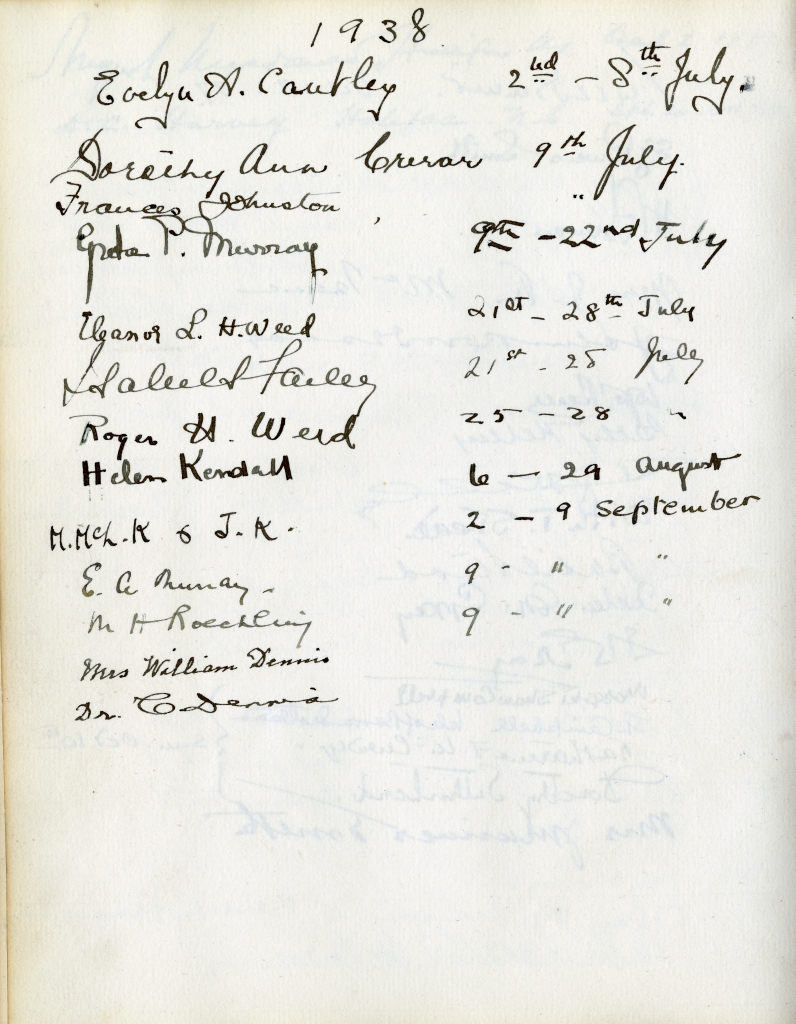 1938
Evelyn A. Cantley 2nd - 8th July.
Dorothy Ann Crerar 9th July.
Frances Johnston "
Greta P. Murray 9th - 22nd July
Eleanor L. H. Weed 21st - 28th July
21st - 28 July
Roger H. Weed 25 - 28 "
Helen Kendall 6 - 29 August
M. McL. K & J. K. 2 - 9 September
E. A. Murray. 9 - " "
M H Roechling 9 - " "
Mrs William Dennis
Dr. C Dennis